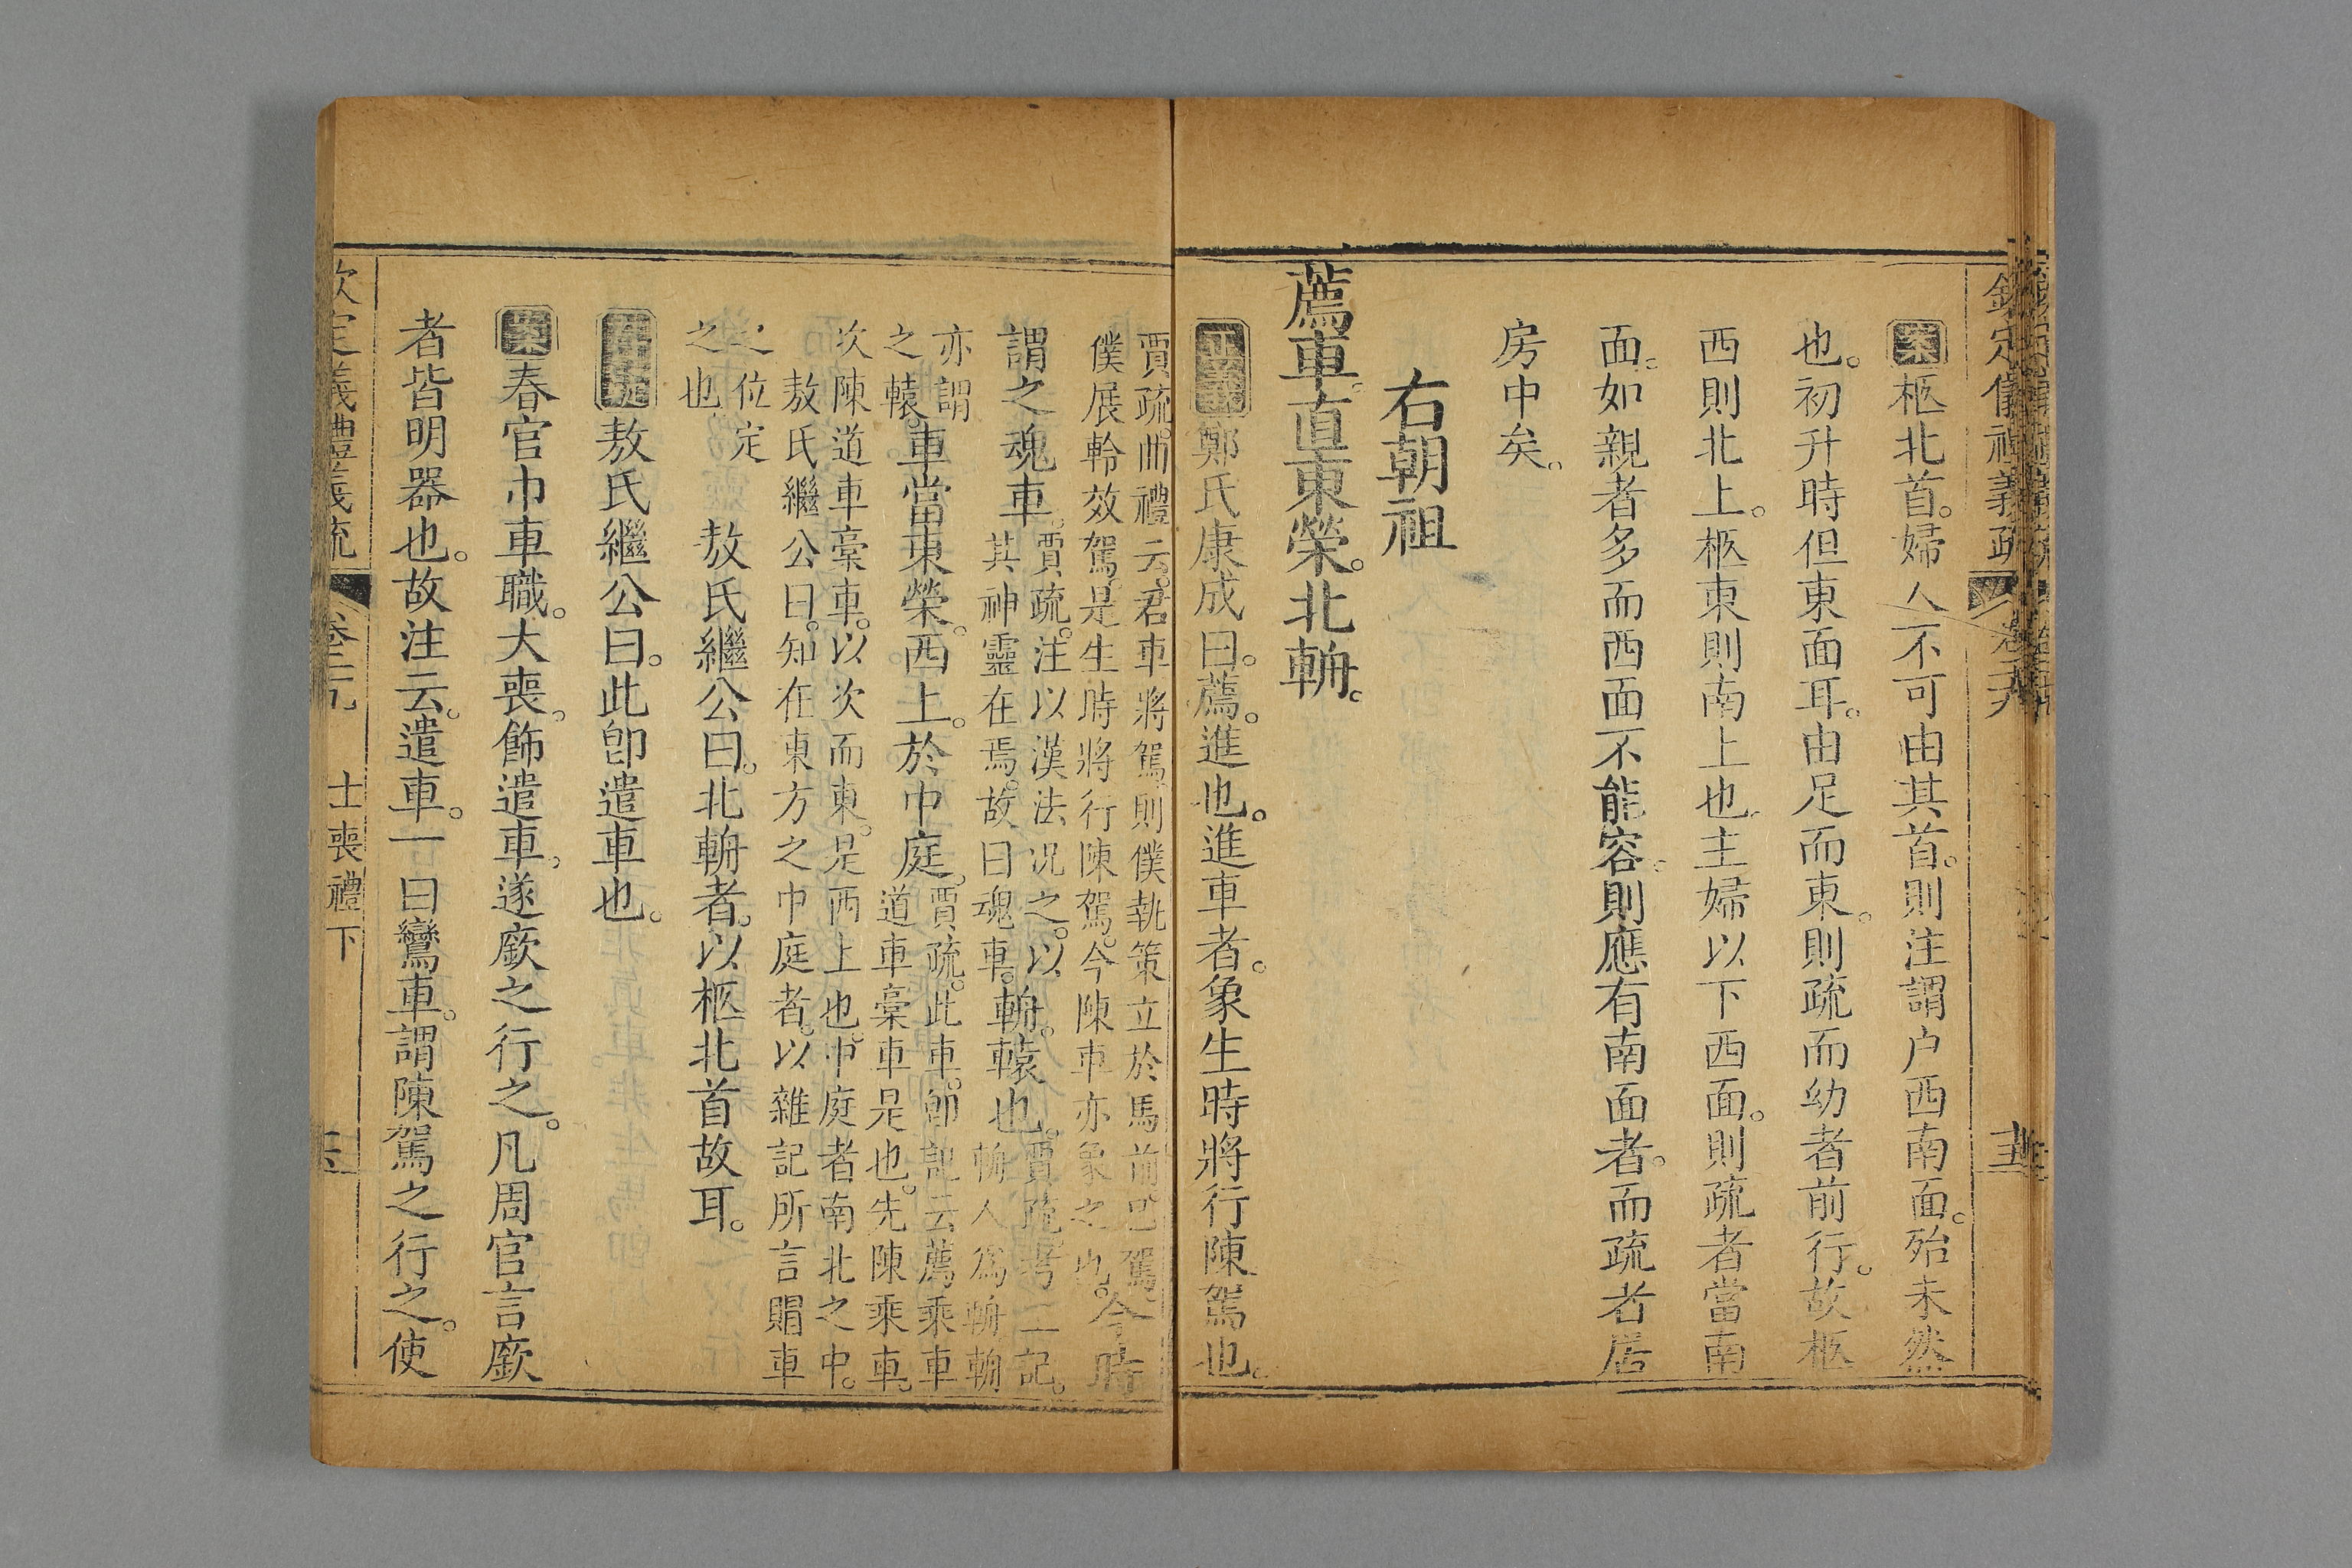 欽定儀禮義疏 卷二十九 士喪禮下 十五
案柩北首。婦人不可由其首。則注謂户西南面。殆未然
也。初升時但東面耳。由足而東。則疏而幼者前行。故柩
西則北上。柩東則南上也。主婦以下西面。則疏者當南
面。如親者多而西面不能容。則應有南面者。而疏者居
房中矣。
右朝祖
薦車。直東榮。北輈。
正義鄭氏康成曰。薦。進也。進車者。象生時將行陳駕也。
賈疏。曲禮云。君車將駕。則僕執策立於馬前。已駕。
僕展軨效駕。是生時將行陳駕。今陳車亦象之也。今時
謂之魂車。賈疏。注以漢法况之。以
其神靈在焉。故曰魂車。輈。轅也。賈疏。考工記。
輈人爲輈。輈
亦謂
之轅。車當東榮。西上。於中庭。賈疏。此車。即記云薦乘車
道車槀車是也。先陳乘車。
次陳道車槀車。以次而東。是西上也。中庭者南北之中。
敖氏繼公曰。知在東方之中庭者。以雜記所言賵車
之位定
之也 敖氏繼公曰。北輈者。以柩北首故耳。
存疑敖氏繼公曰。此卽遣車也。
案春官巾車職。大喪。飾遣車。遂廞之行之。凡周官言廞
者皆明器也。故注云。遣車。一曰鸞車。謂陳駕之行之。使
欽定義禮義疏 卷二九 士喪禮下